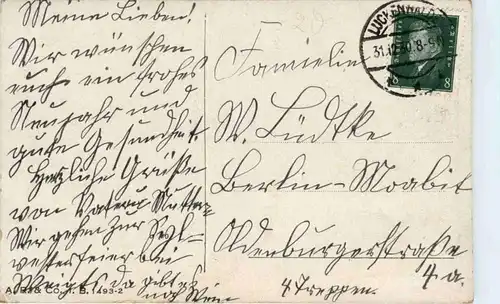 Meine Lieben!
Wir wünschen
euch ein frohes
Neujahr und
gute Gesundheit.
Herzliche Grüße
von Vater u Mutter
Wir gehen zur Syl-
vesterfeier bei
da gibt es
noch Wein
A. R. & C. i. B. 1493-2
LUCKENWALDE
31.12.30. 8-9
8 8
Familie
W. Lüdtke
Berlin-Moabit
Oldenburgerstraße
4a.
4 Treppen.